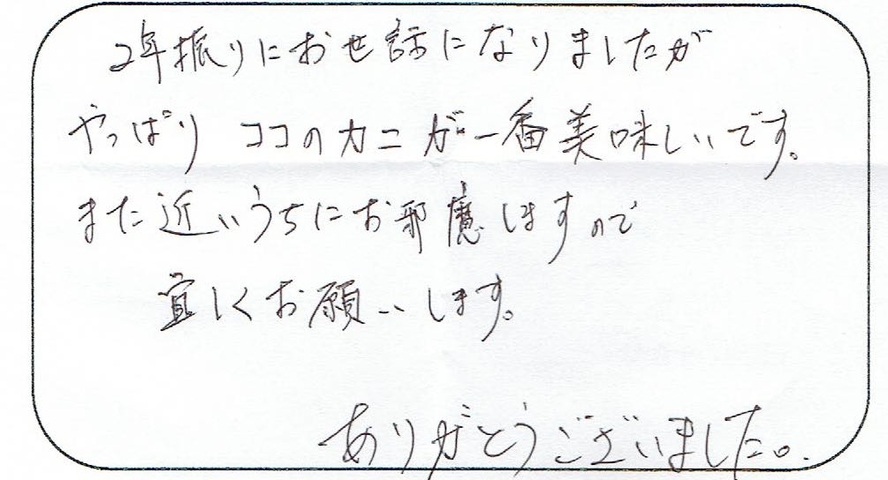 2年振りにお世話になりましたが
やっぱり ココのカニが一番美味しいです。
また近いうちにお邪魔しますので
宜しくお願いします。
ありがとうございました。